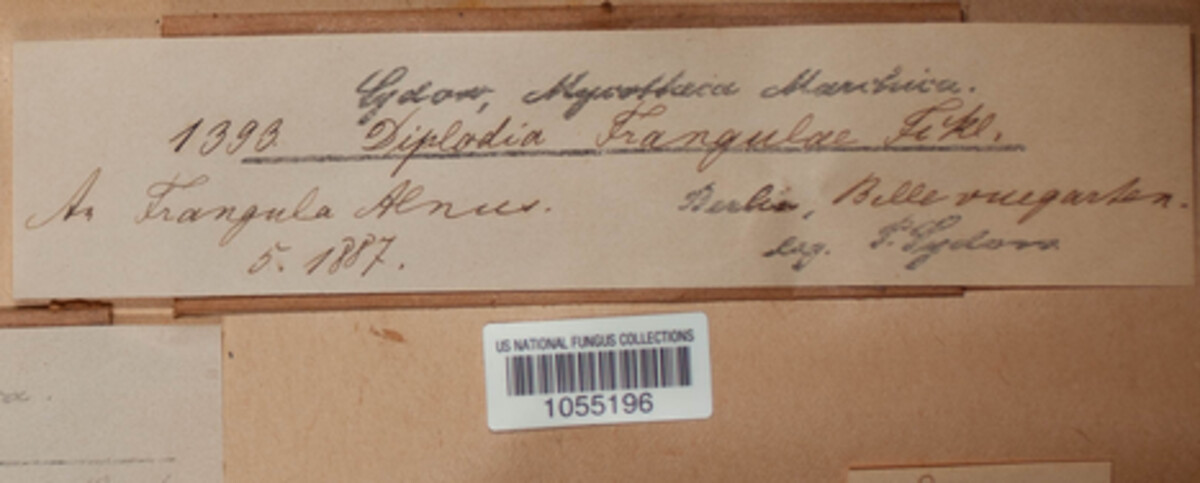 Sydow, Mycotheca Marchica.
1393. Diplodia Frangulae Fckl.
An Frangula Alnus.
Berlin, Bellevuegarten.
5. 1887.
leg. P. Sydow
US NATIONAL FUNGUS COLLECTIONS
1055196